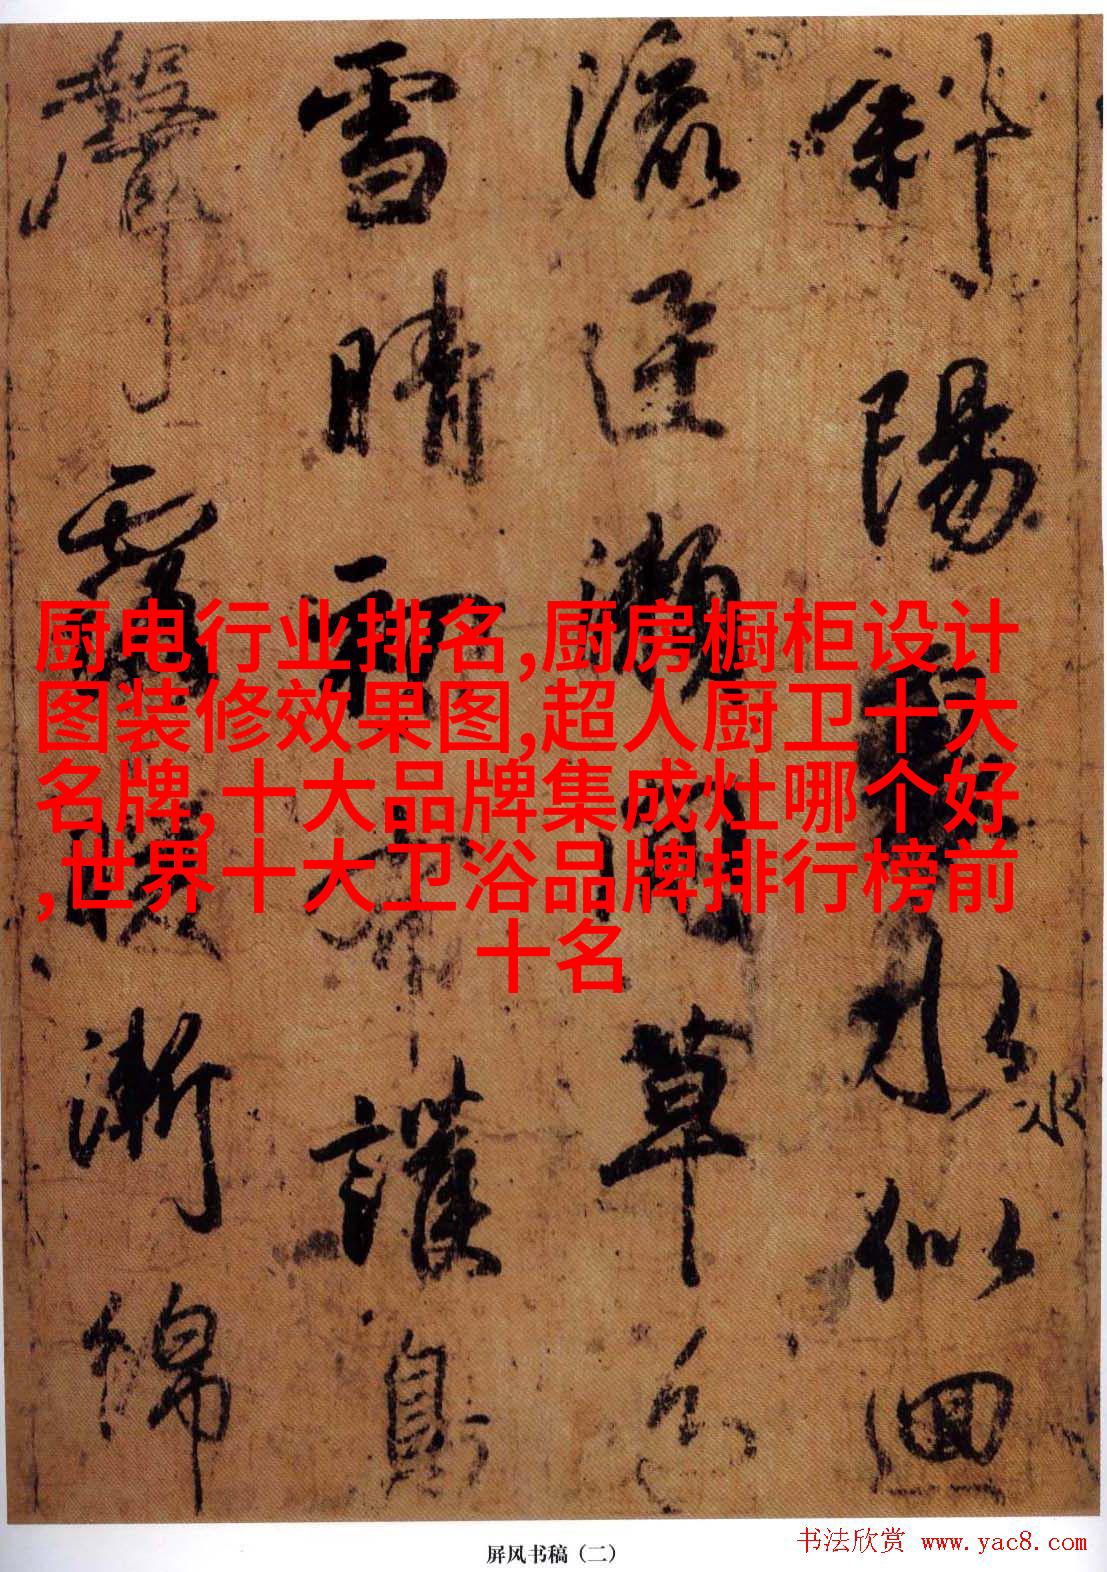 斜陽水似洄
瀨草色
雪晴初布護鳥
聲露暖漸綿
厨电行业排名,厨房橱柜设计
图装修效果图,超人厨卫十大
名牌,十大品牌集成灶哪个好
,世界十大卫浴品牌排行榜前
十名
屏风书稿（二）
书法欣赏 www.yac8.com